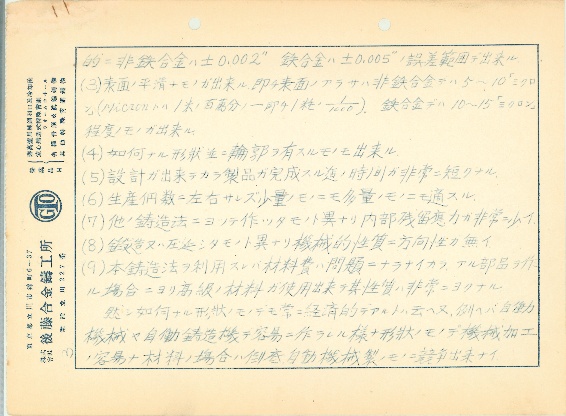 11
的ニ非鉄合金ハ±0.002" 鉄合金ハ±0.005"ノ誤差範囲デ出来ル.
(3)表面ノ平滑ナモノガ出来ル.即チ表面ノアラサハ非鉄合金デハ5〜10ミクロ
ン,(Micronハ1米ノ百万分ノ一即チ1粍ノ1/1000). 鉄合金デハ10〜15ミクロン
程度ノモノガ出来ル.
(4)如何ナル形状並ニ輪郭ヲ有スルモノモ出来ル.
(5)設計ガ出来テカラ製品ガ完成スル迄ノ時間ガ非常ニ短クナル.
(6)生産個数ニ左右サレズ少量ノモノニモ多量ノモノニモ適スル.
(7)他ノ鋳造法ニヨツテ作ツタモノト異ナリ内部残留應力ガ非常ニ少イ.
(8)鍛造又ハ圧延シタモノト異リ機械的性質ニ方向性ガ無イ
(9)本鋳造法ヲ利用スレバ材料費ハ問題ニナラナイカラ アル部品ヲ作
ル場合ニヨリ高級ノ材料ガ使用出来テ其性質ハ非常ニヨクナル.
然シ如何ナル形状ノモノデモ常ニ経済的デアルトハ云ヘヌ,例ヘバ自動
機械ヤ自働鋳造機デ容易ニ作ラレル様ナ形状ノモノデ機械加工
ノ容易ナ材料ノ場合ハ自動機械製ノモノニ競争出来ナイ
株式会社 後藤合金鑄工所
東京都立川市錦町6-37
電話立川327番
GTO